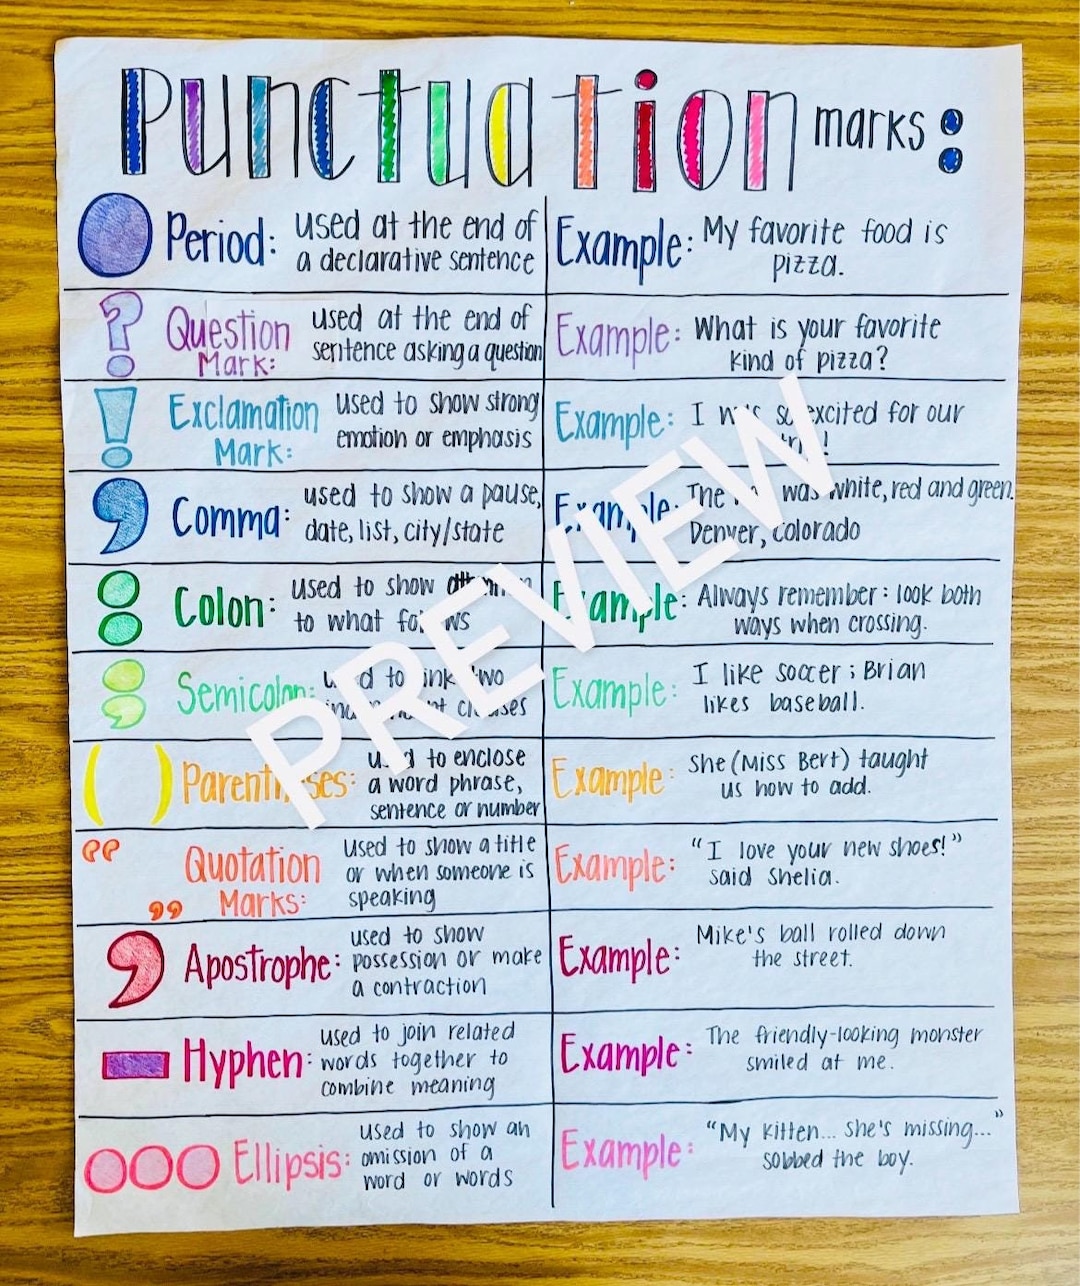 Punctuation marks:
Period: used at the end of
a declarative sentence
Example: My favorite food is
pizza.
?
Question
Mark:
used at the end of
sentence asking a question
Example: What is your favorite
kind of pizza?
!
Exclamation
Mark:
used to show strong
emotion or emphasis
Example: I was so excited for our
,
Comma: used to show a pause,
date, list, city/state
Example: The was white, red and green.
Denver, Colorado
:
Colon: used to show attention
to what follows
Example: Always remember: look both
ways when crossing.
;
Semicolon: used to link two
independent clauses
Example: I like soccer ; Brian
likes baseball.
( )
Parentheses: used to enclose
a word phrase,
sentence or number
Example: She (Miss Bert) taught
us how to add.
“ ”
Quotation
Marks:
used to show a title
or when someone is
speaking
Example: "I love your new shoes!"
said Shelia.
’
Apostrophe: used to show
possession or make
a contraction
Example: Mike's ball rolled down
the street.
-
Hyphen: used to join related
words together to
combine meaning
Example: The friendly-looking monster
smiled at me.
Ellipsis: used to show an
omission of a
word or words
Example: "My kitten... she's missing..."
sobbed the boy.
PREVIEW